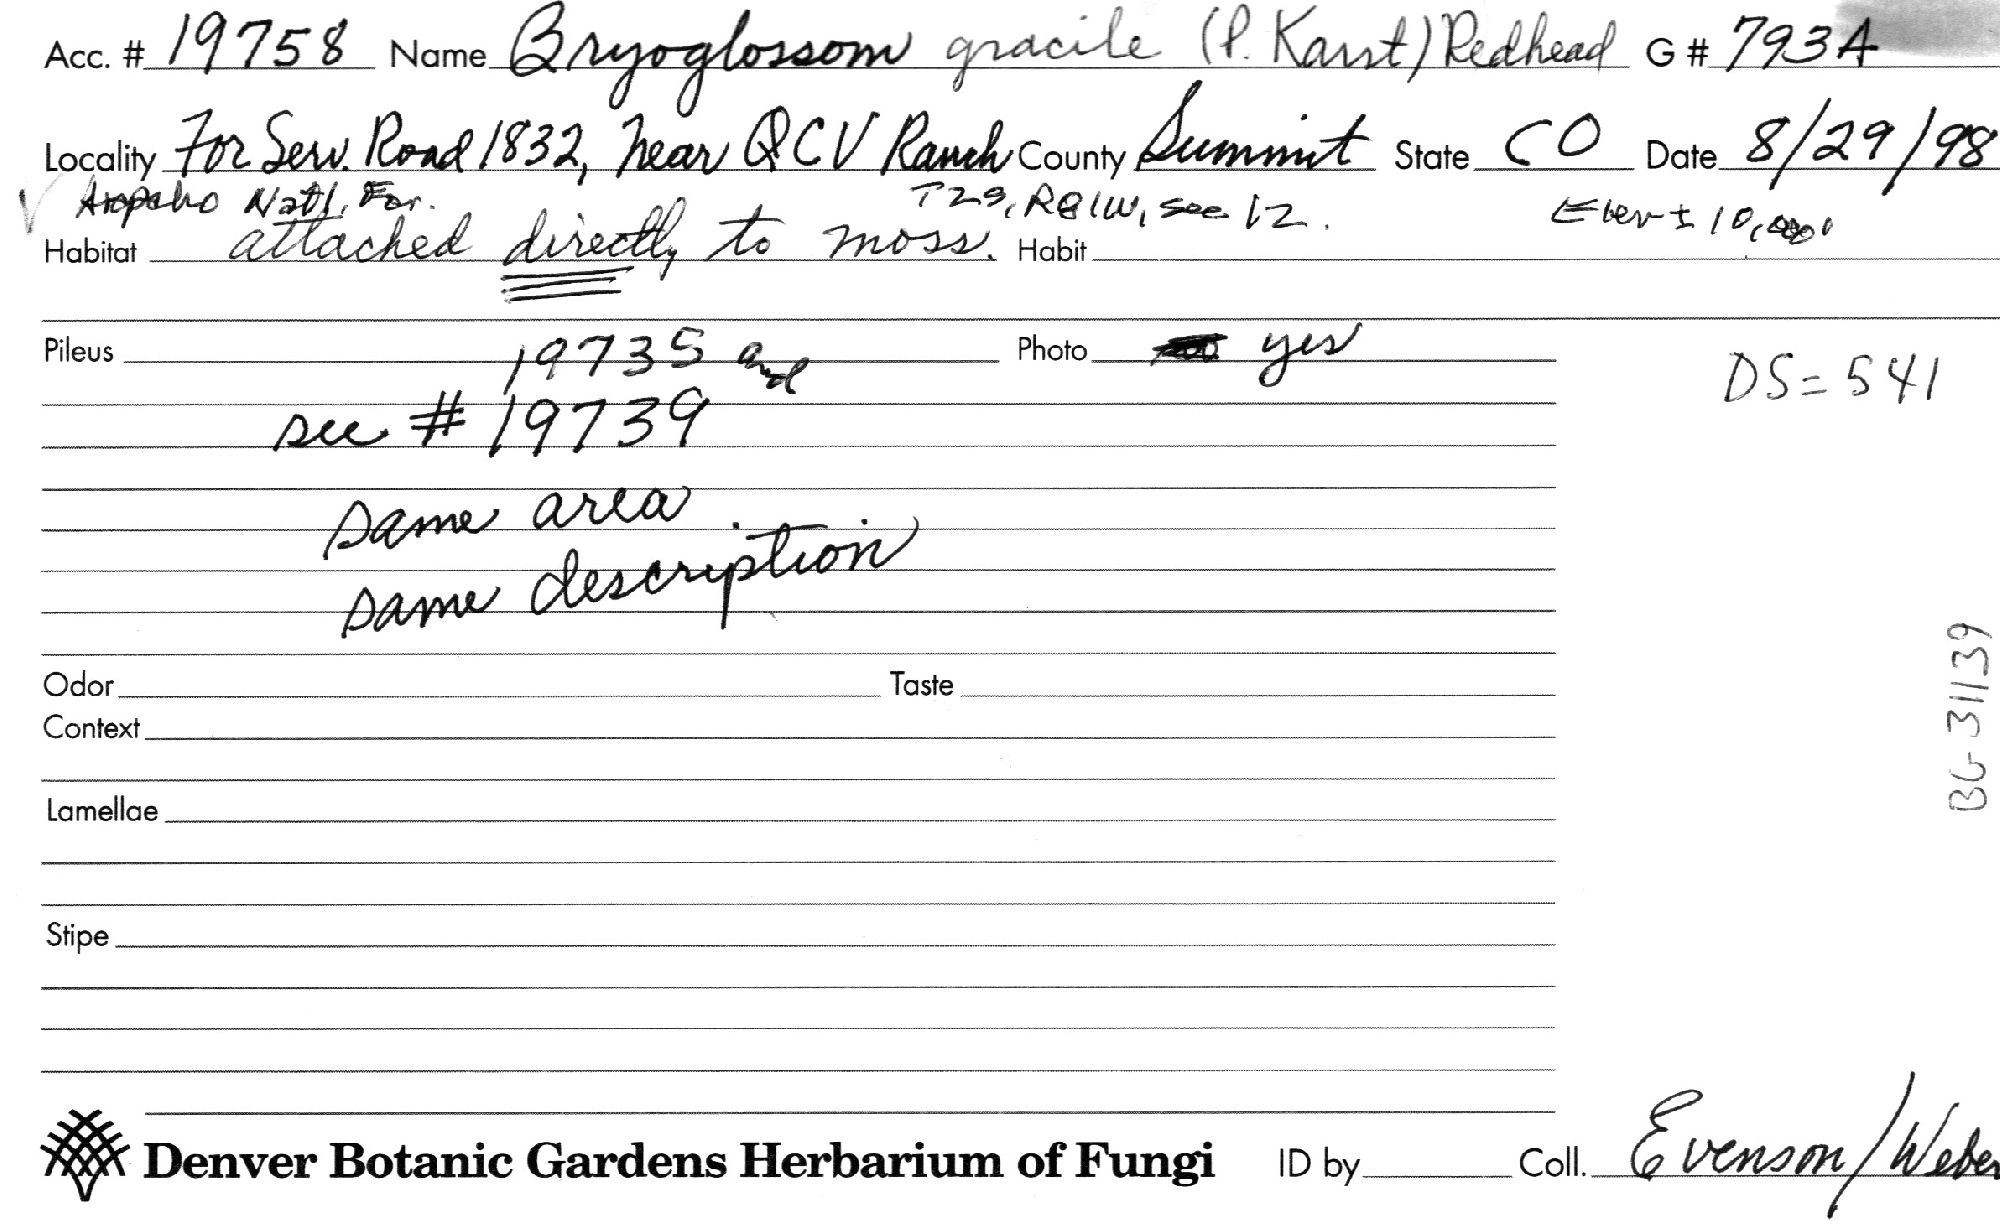 Acc. # 19758 Name Bryoglossom gracile (P. Karst) Redhead G # 793A
Locality For Serv. Road 1832, near QCV Ranch County Summit State CO Date 8/29/98
√ Arapaho Nat'l. For. T2S, R81W, sec 12. Elev ± 10,000'
Habitat attached directly to moss. Habit
Pileus 19735 and Photo yes
DS=541
see # 19739
same area
same description
BG 31139
Odor Taste
Context
Lamellae
Stipe
Denver Botanic Gardens Herbarium of Fungi ID by Coll. Evenson/Weber